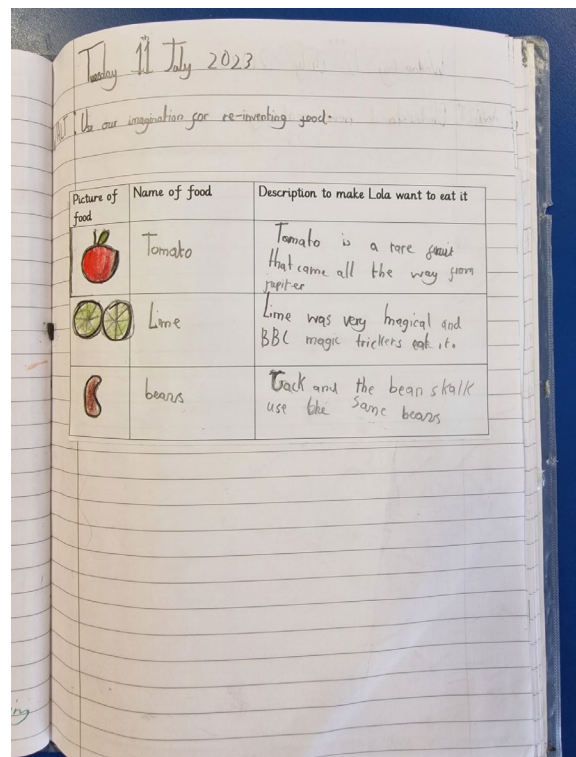 Tuesday 11th July 2023
WALT: Use our imagination for re-inventing food.
Picture of food
Name of food
Description to make Lola want to eat it
Tomato
Tomato is a rare fruit
that came all the way from
jupiter
Lime
Lime was very magical and
BBC magic trickers eat it.
beans
Jack and the bean stalk
use the same beans
ing